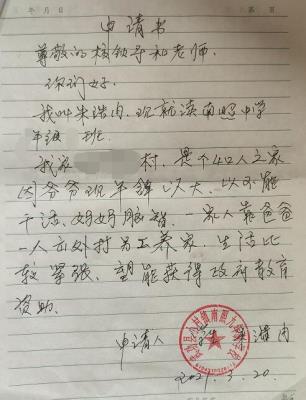 年 月 日
第 页
申请书
尊敬的校领导和老师.
你们好.
我叫朱浩冉,现就读南照中学
年级 班.
我家 村,是个4口人之家
因爷爷现年龄以大,以不能
干活、妈妈脑 一家人靠爸爸
一人在外打为工养家,生活比
较紧张,望能获得政府教育
资助.
申请人
2021.3.20.